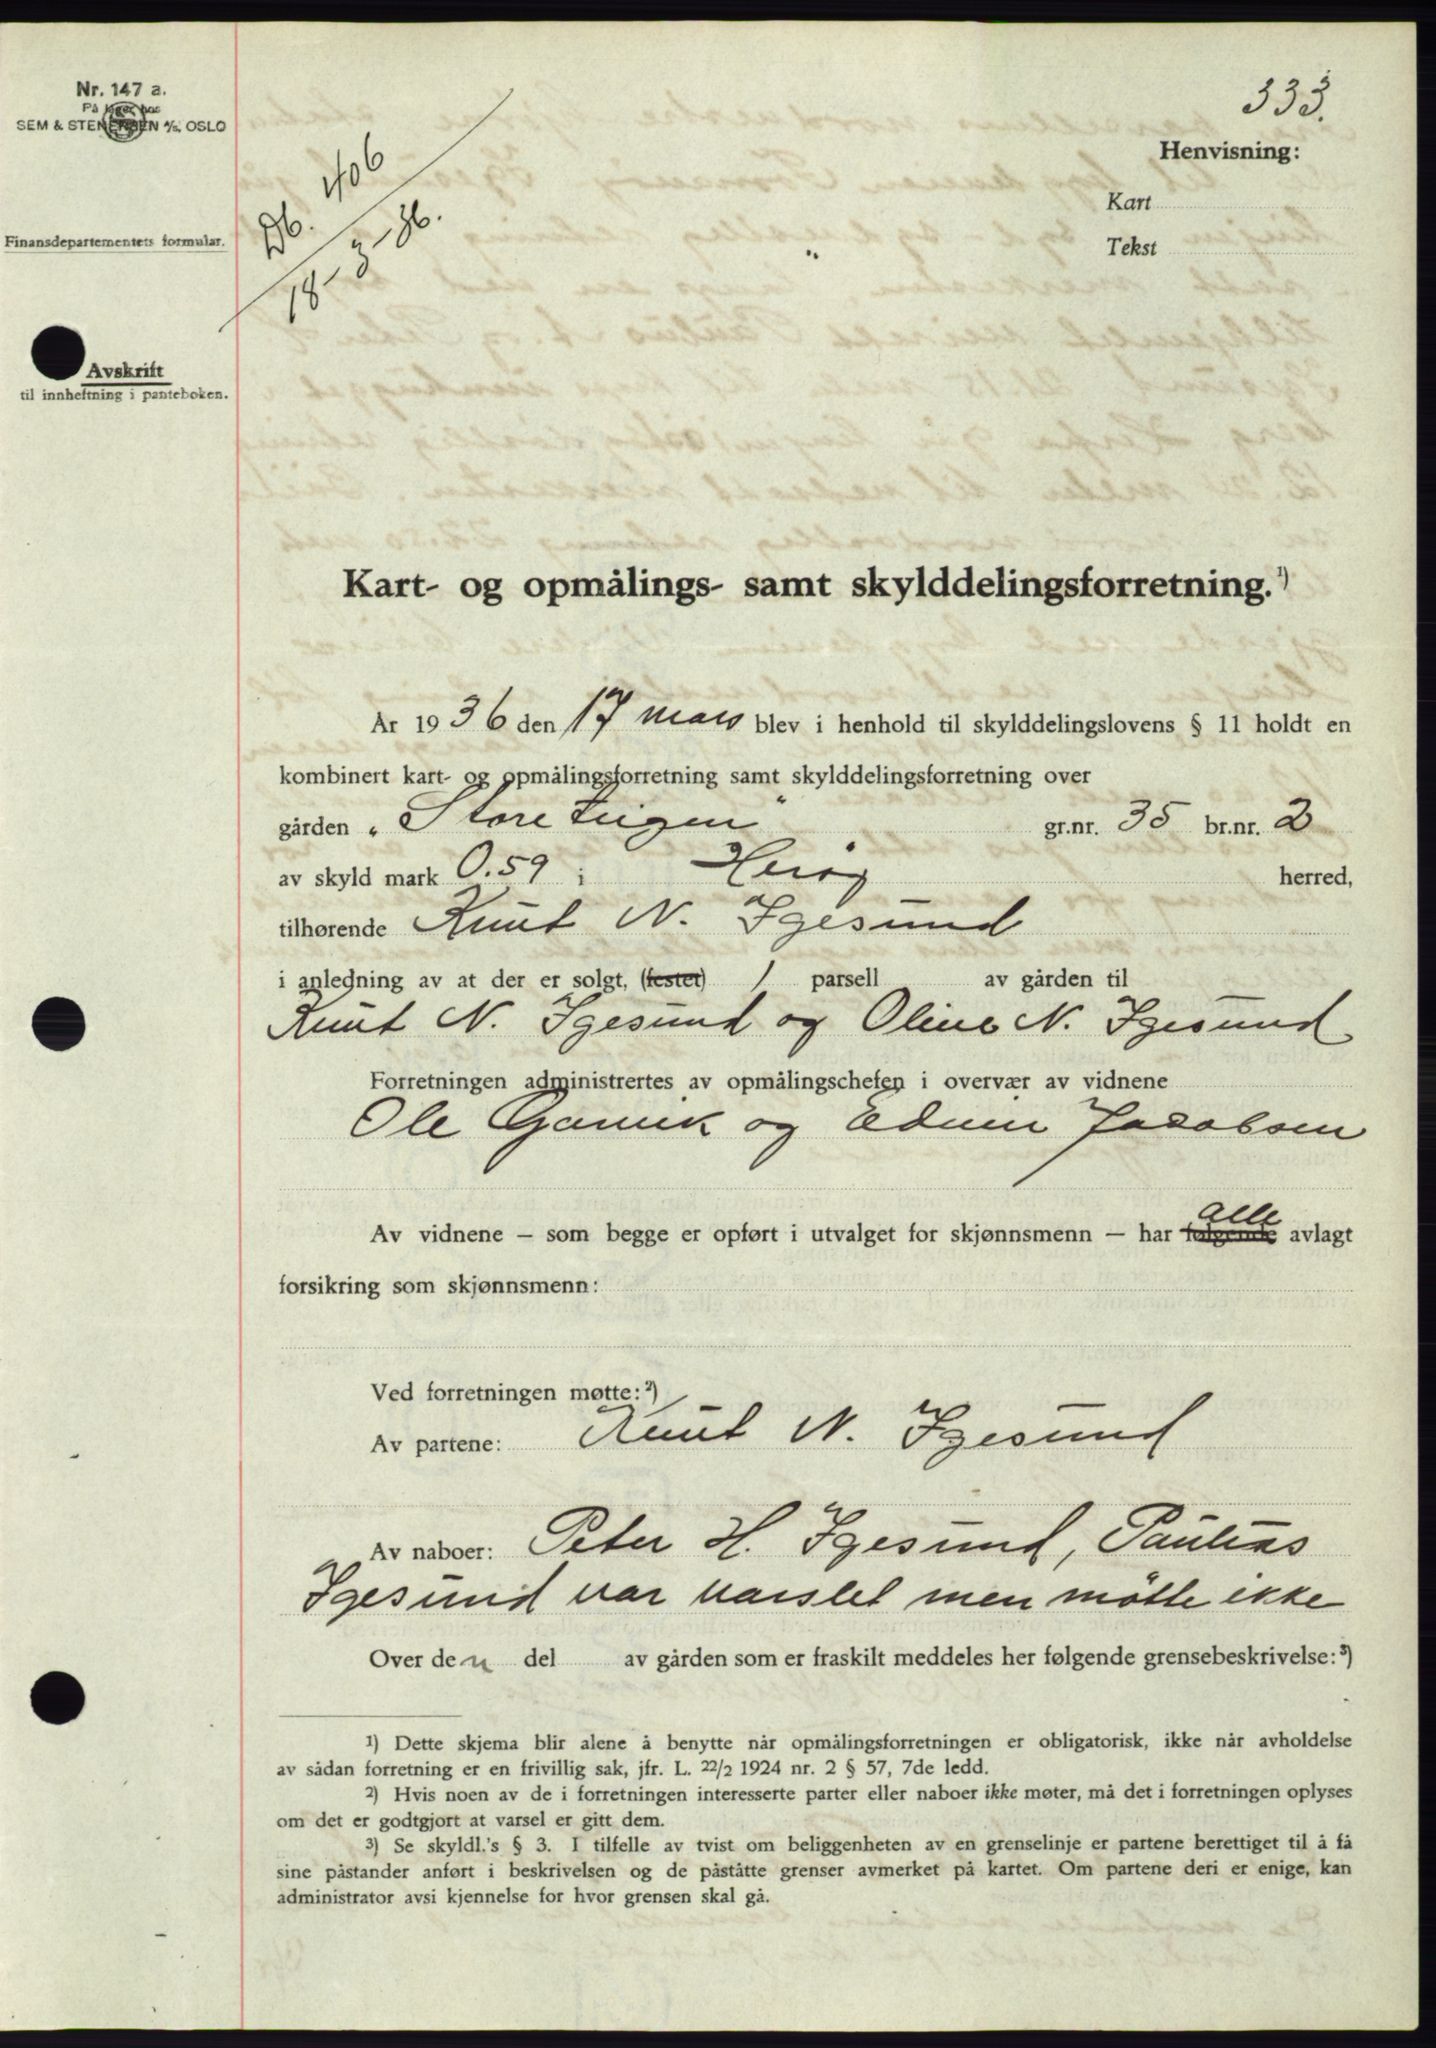 333.
Nr. 147 a.
På lager hos
SEM & STENERSEN A/S. OSLO
Henvisning:
Kart
Tekst
Finansdepartementets formular.
Db. 406
18-3-36.
Avskrift
til innheftning i panteboken.
Kart- og opmålings- samt skylddelingsforretning.¹)
År 1936 den 17 mars blev i henhold til skylddelingslovens § 11 holdt en
kombinert kart- og opmålingsforretning samt skylddelingsforretning over
gården „Store" gr.nr. 35 br.nr. 2
av skyld mark 0.59 i Herøy herred,
tilhørende Knut N. Igesund
i anledning av at der er solgt, (festet) 1 parsell av gården til
Knut N. Igesund og Oline N. Igesund
Forretningen administrertes av opmålingschefen i overvær av vidnene
Ole Gamvik og Edvin Jacobsen
Av vidnene – som begge er opført i utvalget for skjønnsmenn – har følgende alle avlagt
forsikring som skjønnsmenn:
Ved forretningen møtte:²)
Av partene: Knut N. Igesund
Av naboer: Peter H. Igesund, Paulus
Igesund var varslet men møtte ikke
Over den del av gården som er fraskilt meddeles her følgende grensebeskrivelse:³)
¹) Dette skjema blir alene å benytte når opmålingsforretningen er obligatorisk, ikke når avholdelse
av sådan forretning er en frivillig sak, jfr. L. 22/2 1924 nr. 2 § 57, 7de ledd.
²) Hvis noen av de i forretningen interesserte parter eller naboer ikke møter, må det i forretningen oplyses
om det er godtgjort at varsel er gitt dem.
³) Se skyldl.'s § 3. I tilfelle av tvist om beliggenheten av en grenselinje er partene berettiget til å få
sine påstander anført i beskrivelsen og de påståtte grenser avmerket på kartet. Om partene deri er enige, kan
administrator avsi kjennelse for hvor grensen skal gå.